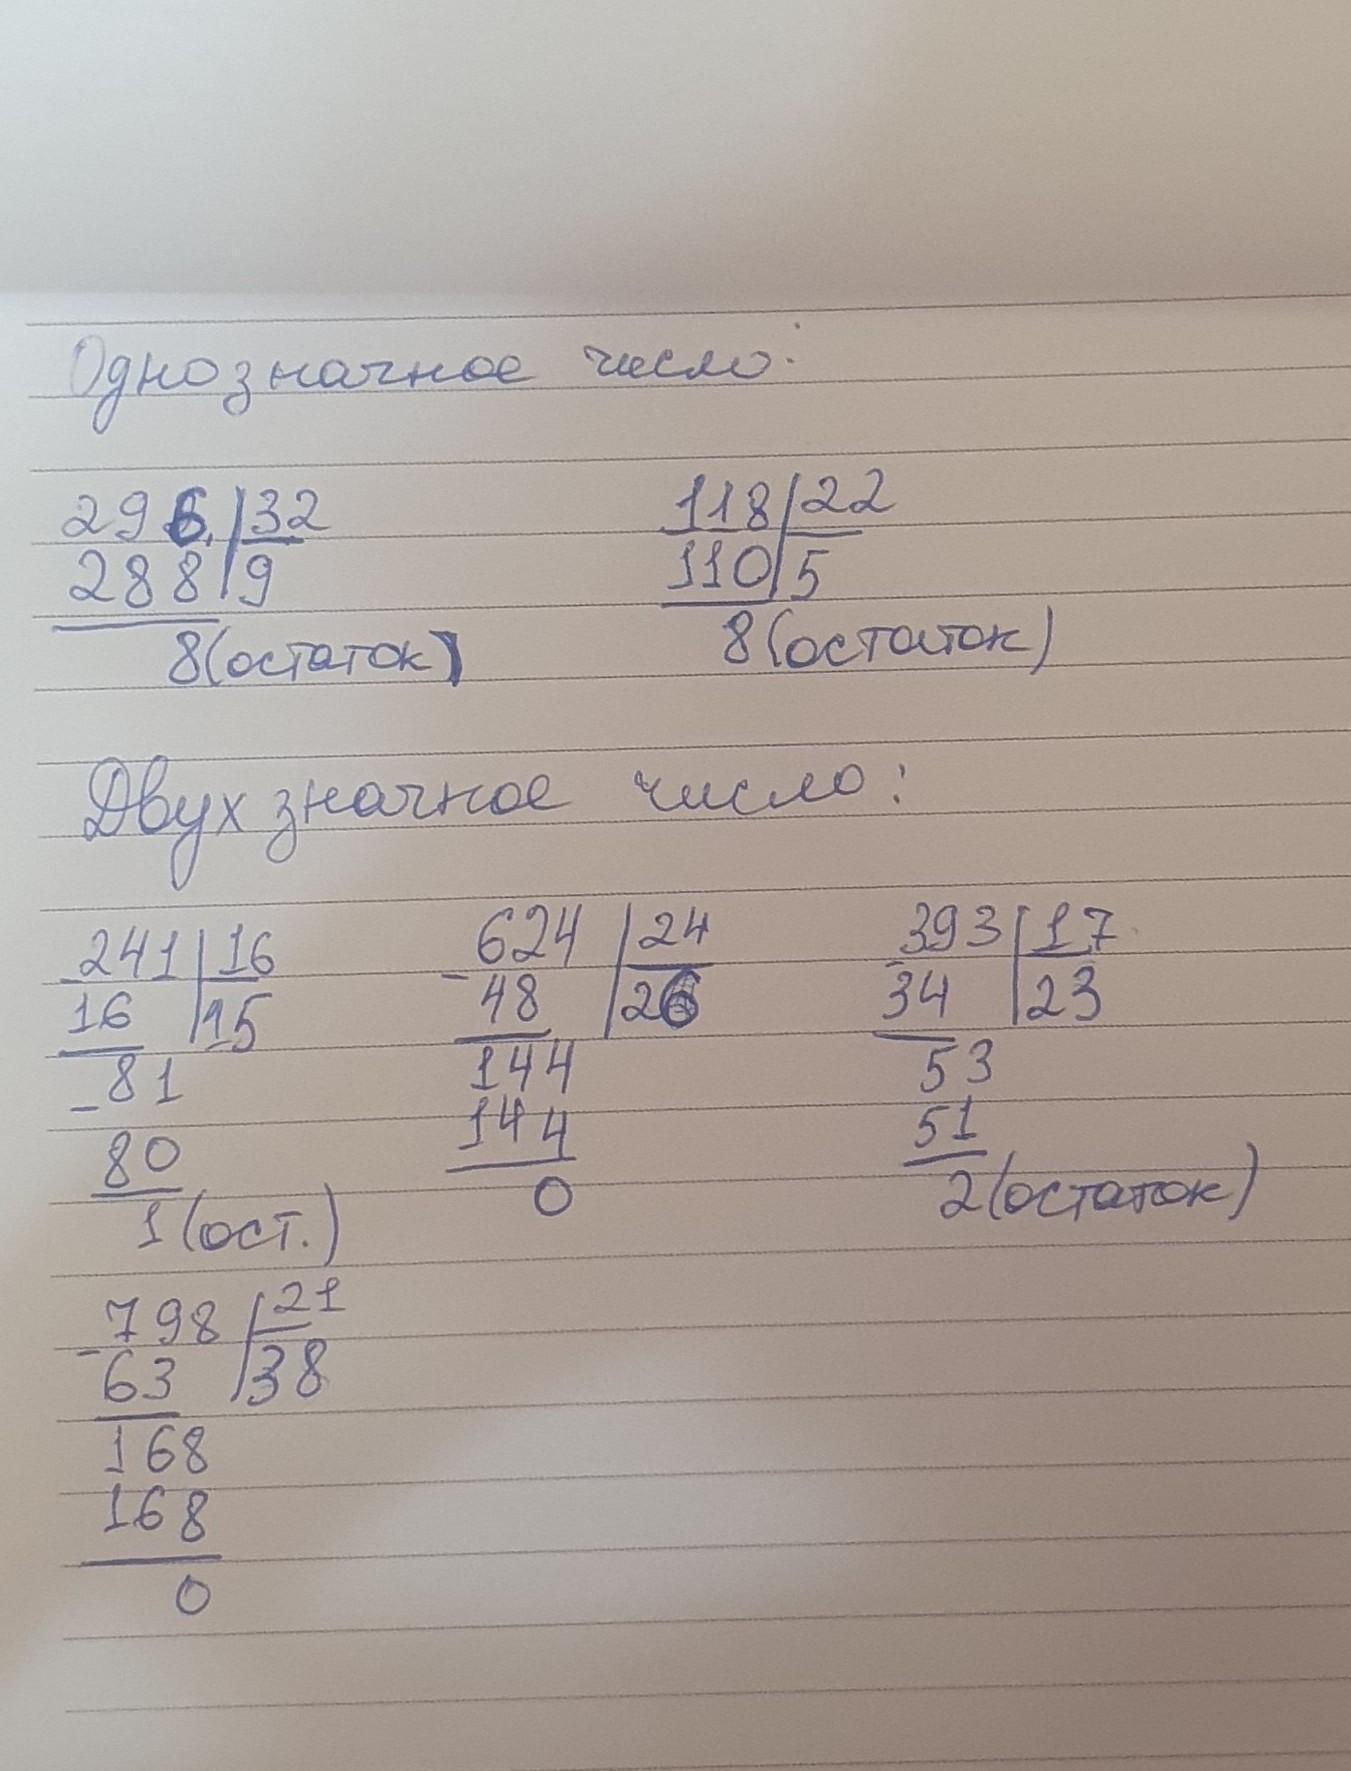 Однозначное число:
296 32 118 22
288 9 110 5
8(остаток) 8(остаток)
Двухзначное число:
-241 16 -624 24 -393 17
16 15 48 26 34 23
-81 144 53
80 144 51
1(ост.) 0 2(остаток)
-798 21
63 38
168
168
0